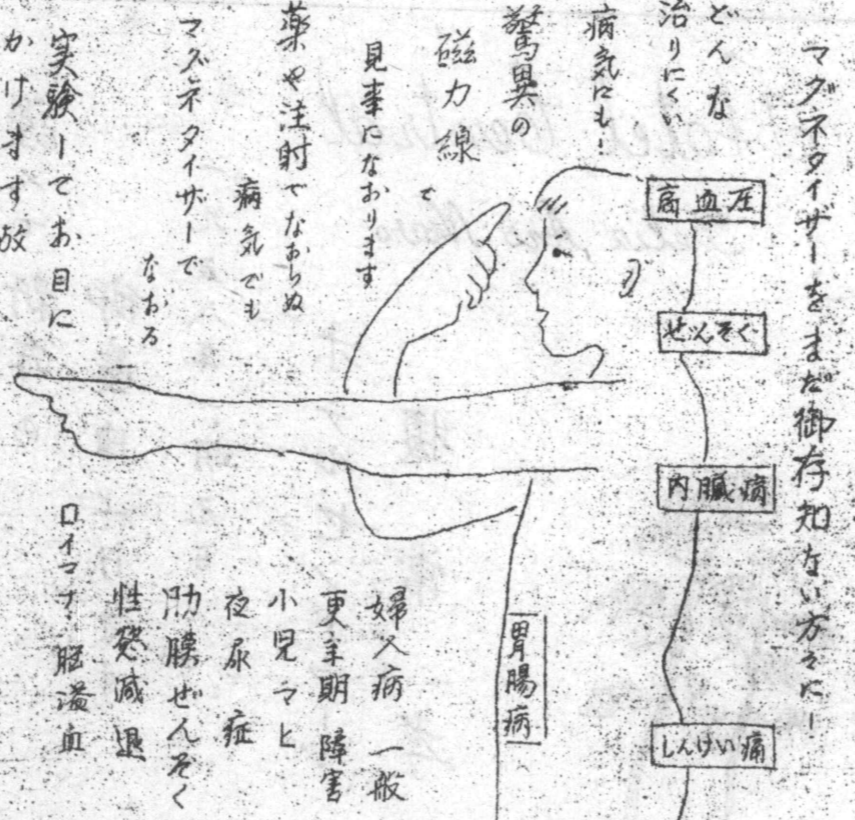 マグネタイザーをまだ御存知ない方々に！
どんな
治りにくい
病気にも！
驚異の
磁力線で
見事になおります
薬や注射でなおらぬ
病気でも
マグネタイザーで
なおる
実験してお目に
かけます故
高血圧
ぜんそく
内臓病
しんけい痛
胃腸病
婦人病一般
更年期障害
小児マヒ
夜尿症
肋膜ぜんそく
性慾減退
脳溢血